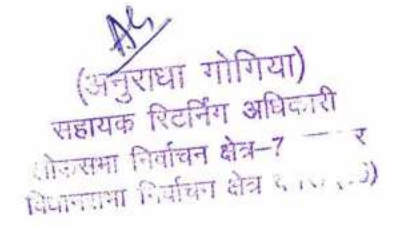 (अनुराधा गोगिया)
सहायक रिटर्निंग अधिकारी
लोकसभा निर्वाचन क्षेत्र-7
विधानसभा निर्वाचन क्षेत्र